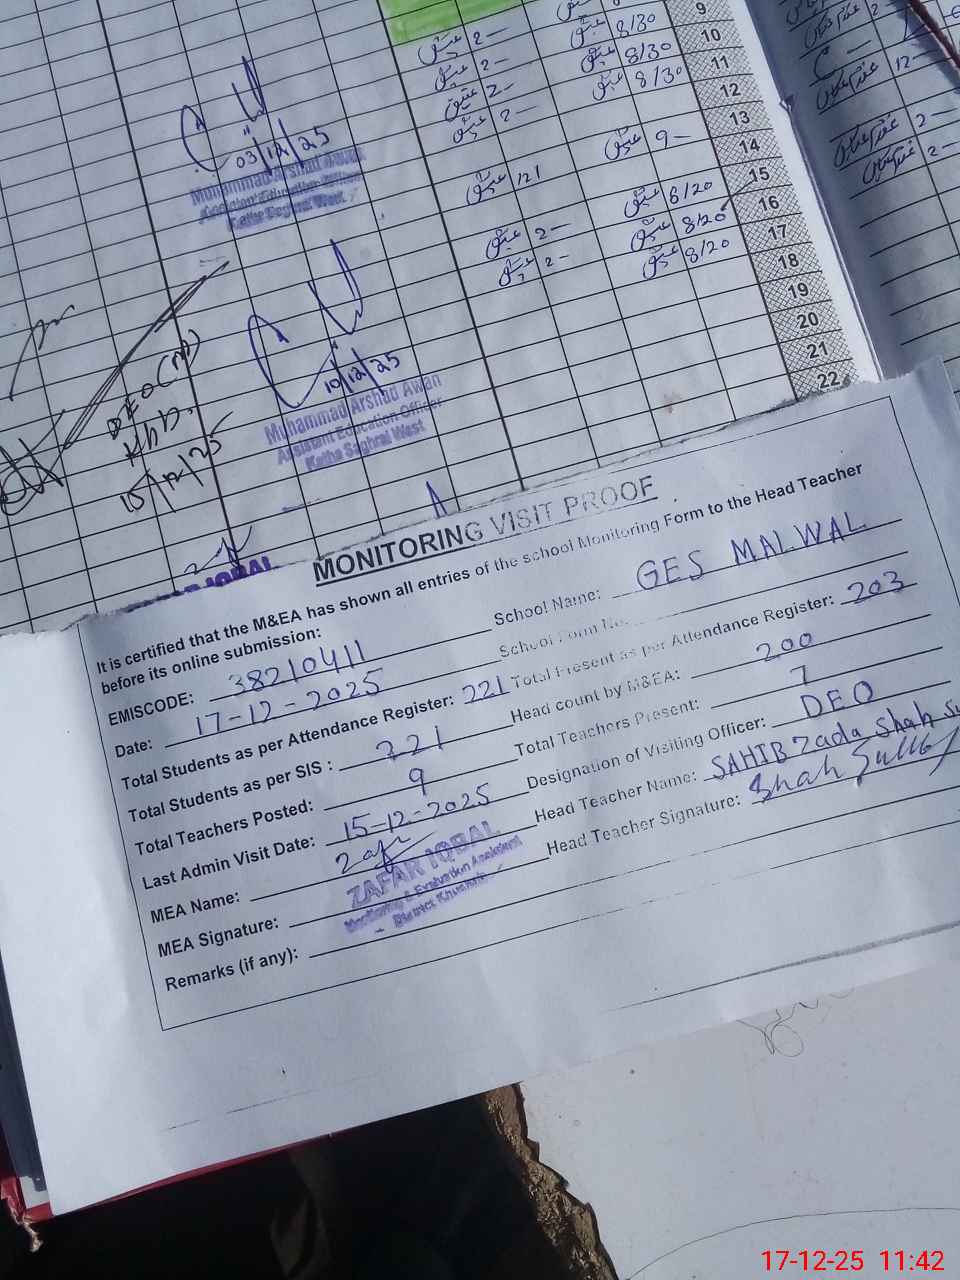 9
2—
8/30
10
2—
8/30
11
2—
8/30
12
2—
8/30
13
9—
14
121
15
8/20
16
2—
8/20
17
2—
8/20
18
19
20
21
22
12—
2—
2—
03/12/25
Muhammad Arshad Awan
Assistant Education Officer
Katha Saghral West
10/12/25
Muhammad Arshad Awan
Assistant Education Officer
Katha Saghral West
DEO (M)
Khb.
15/12/25
IQBAL
MONITORING VISIT PROOF
It is certified that the M&EA has shown all entries of the school Monitoring Form to the Head Teacher
before its online submission:
EMISCODE: 38210411
School Name: GES MALWAL
Date: 17-12-2025
School Form No.
Total Students as per Attendance Register: 221
Total Present as per Attendance Register: 203
Total Students as per SIS : 221
Head count by M&EA: 200
Total Teachers Posted: 9
Total Teachers Present: 7
Last Admin Visit Date: 15-12-2025
Designation of Visiting Officer: DEO
MEA Name: Zafar
Head Teacher Name: SAHIBZada Shah
MEA Signature:
Head Teacher Signature:
ZAFAR IQBAL
Monitoring & Evaluation Assistant
District Khushab
Remarks (if any):
17-12-25 11:42